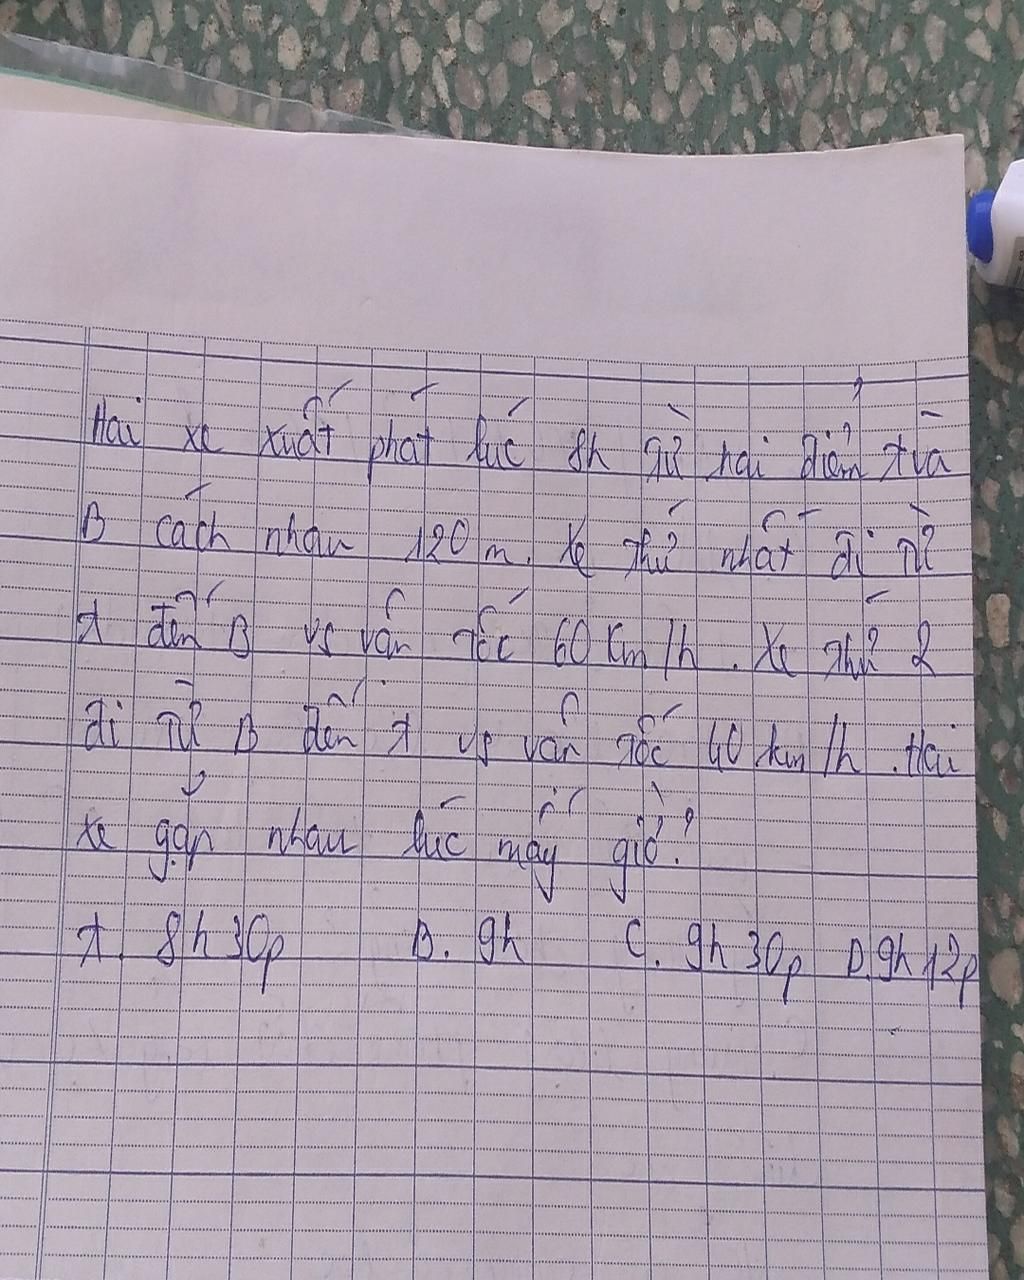 Hai xe xuất phát lúc 8h từ hai điểm A và
B cách nhau 120 m. Xe thứ nhất đi từ
A đến B vs vận tốc 60 Km/h. Xe thứ 2
đi từ B đến A vs vận tốc 40 km/h. Hai
xe gặp nhau lúc mấy giờ?
A. 8h30p B. 9h C. 9h30p D. 9h12p